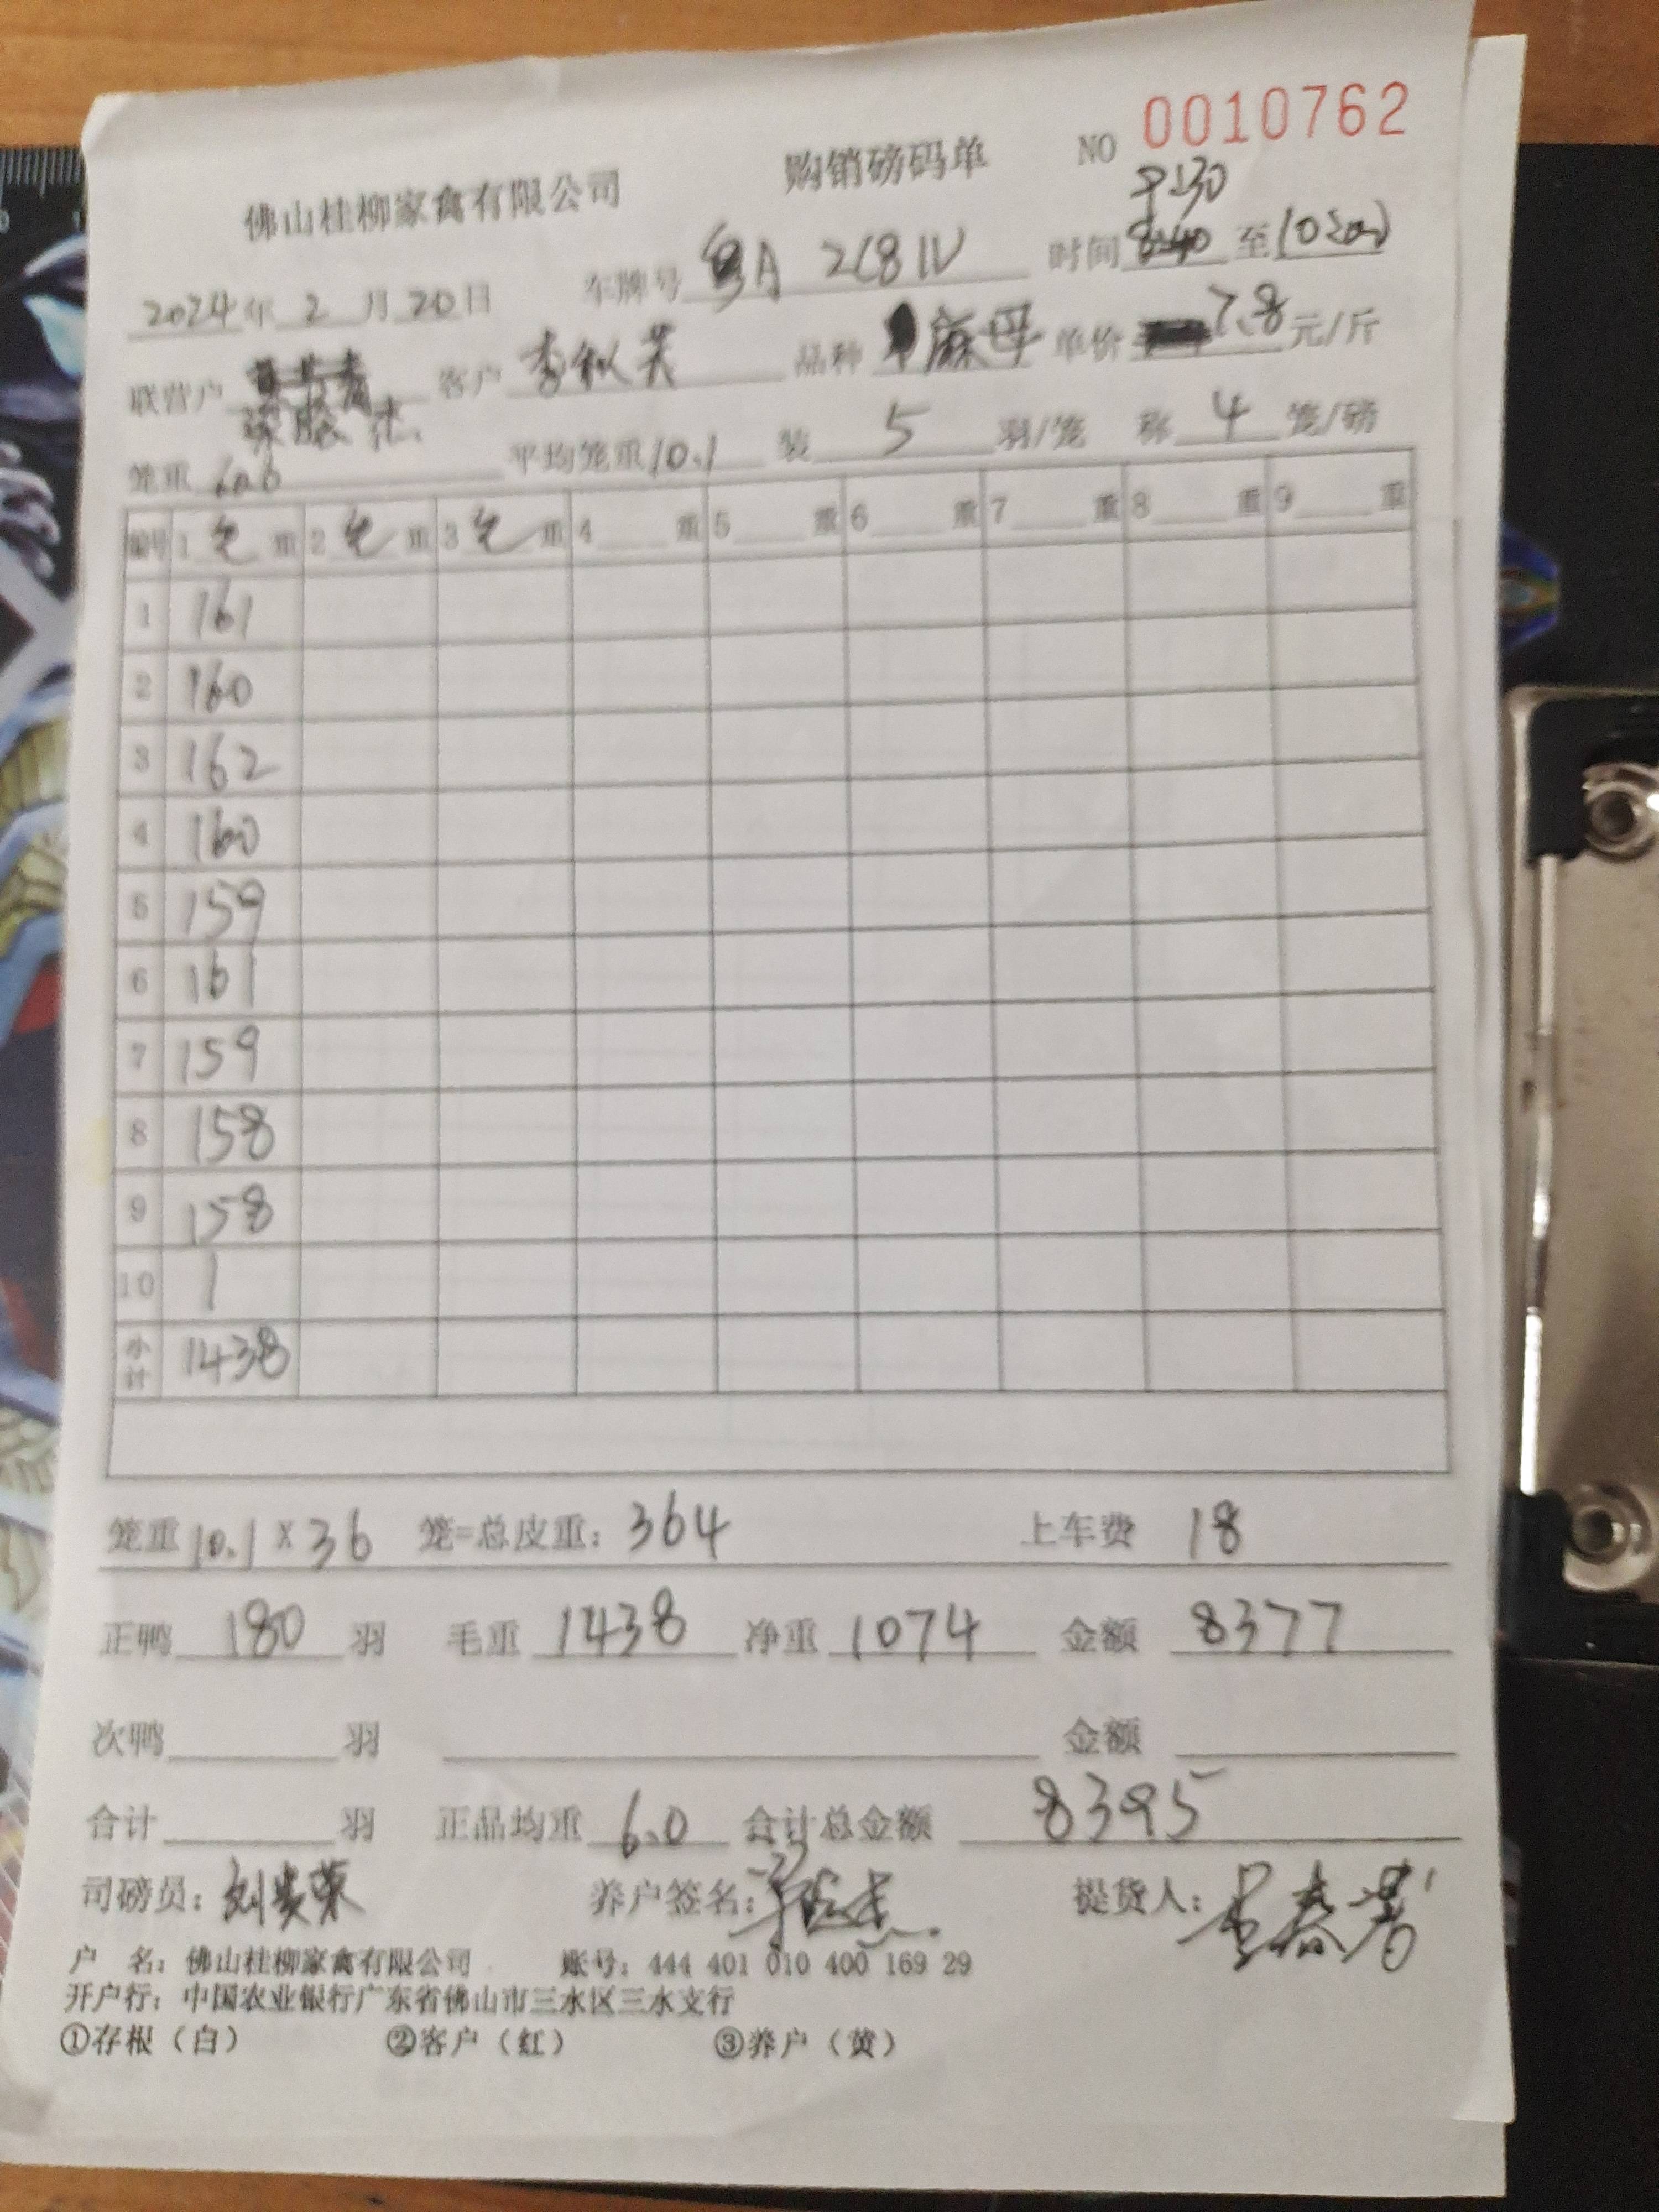 购销磅码单 NO 0010762
佛山桂柳家禽有限公司
9:30
2024年 2 月 20 日 车牌号 粤A 2681V 时间 8:40 至
联营户 客户 李秋芙 品种 麻母 单价 7.8 元/斤
笼重 平均笼重 10.1 装 5 羽/笼 称 4 笼/磅
编号 1 毛 重 2 毛 重 3 毛 重 4 重 5 重 6 重 7 重 8 重 9 重
1 161
2 160
3 162
4 160
5 159
6 161
7 159
8 158
9 158
10 1
小计 1438
笼重 10.1 X 36 笼=总皮重: 364 上车费 18
正鸭 180 羽 毛重 1438 净重 1074 金额 8377
次鸭 羽 金额
合计 羽 正品均重 6.0 合计总金额 8395
司磅员: 养户签名: 提货人:
户 名: 佛山桂柳家禽有限公司 账号: 444 401 010 400 169 29
开户行: 中国农业银行广东省佛山市三水区三水支行
①存根（白） ②客户（红） ③养户（黄）